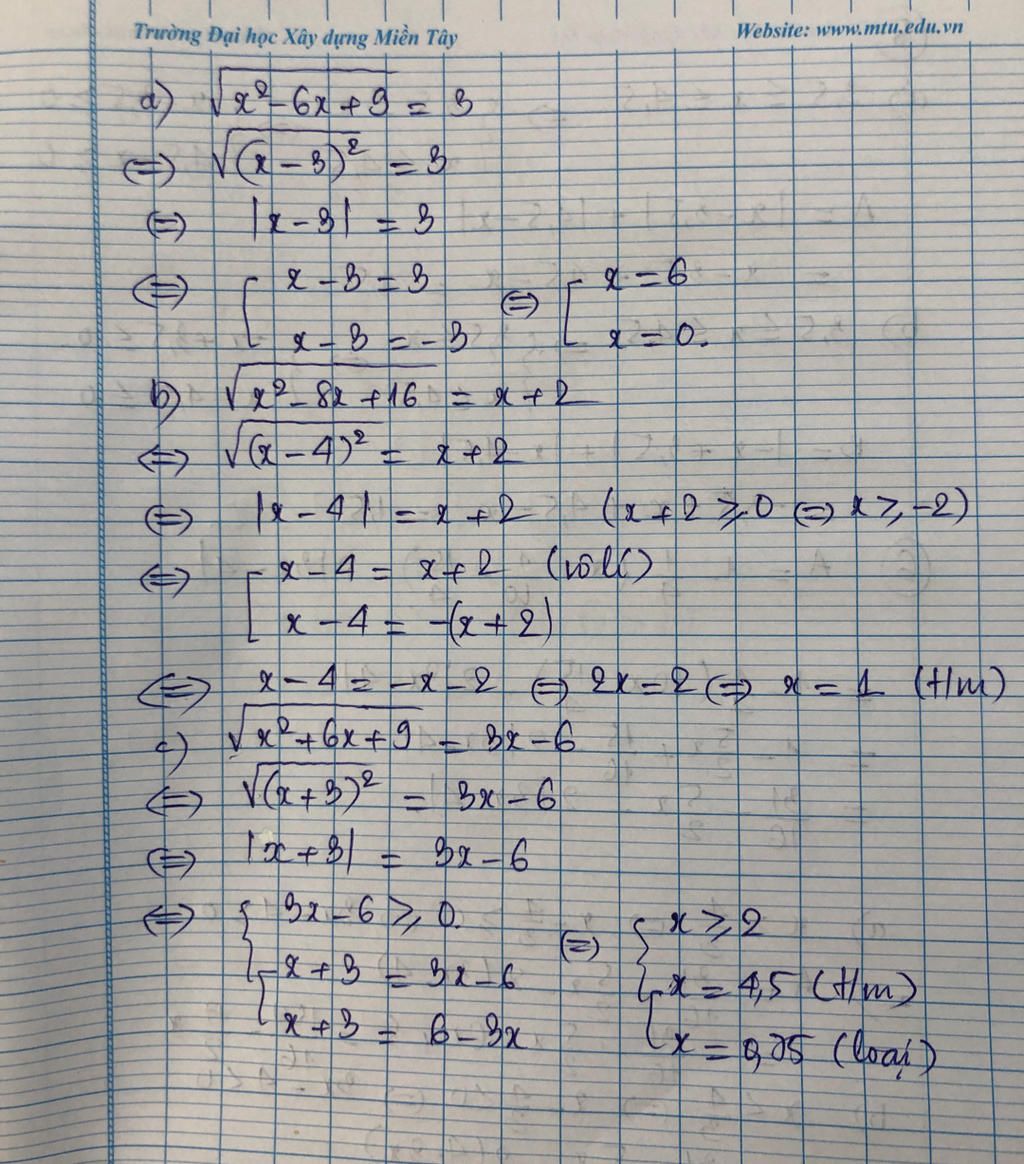 Trường Đại học Xây dựng Miền Tây Website: www.mtu.edu.vn
a) √(x² - 6x + 9) = 3
⇔ √((x - 3)²) = 3
⇔ |x - 3| = 3
⇔ [ x - 3 = 3 ⇔ [ x = 6
x - 3 = -3 x = 0.
b) √(x² - 8x + 16) = x + 2
⇔ √((x - 4)²) = x + 2
⇔ |x - 4| = x + 2 (x + 2 ≥ 0 ⇔ x ≥ -2)
⇔ [ x - 4 = x + 2 (vô lí)
x - 4 = -(x + 2)
⇔ x - 4 = -x - 2 ⇔ 2x = 2 ⇔ x = 1 (t/m)
c) √(x² + 6x + 9) = 3x - 6
⇔ √((x + 3)²) = 3x - 6
⇔ |x + 3| = 3x - 6
⇔ { 3x - 6 ≥ 0. ⇔ { x ≥ 2
[ x + 3 = 3x - 6 [ x = 4,5 (t/m)
x + 3 = 6 - 3x x = 0,75 (loại)